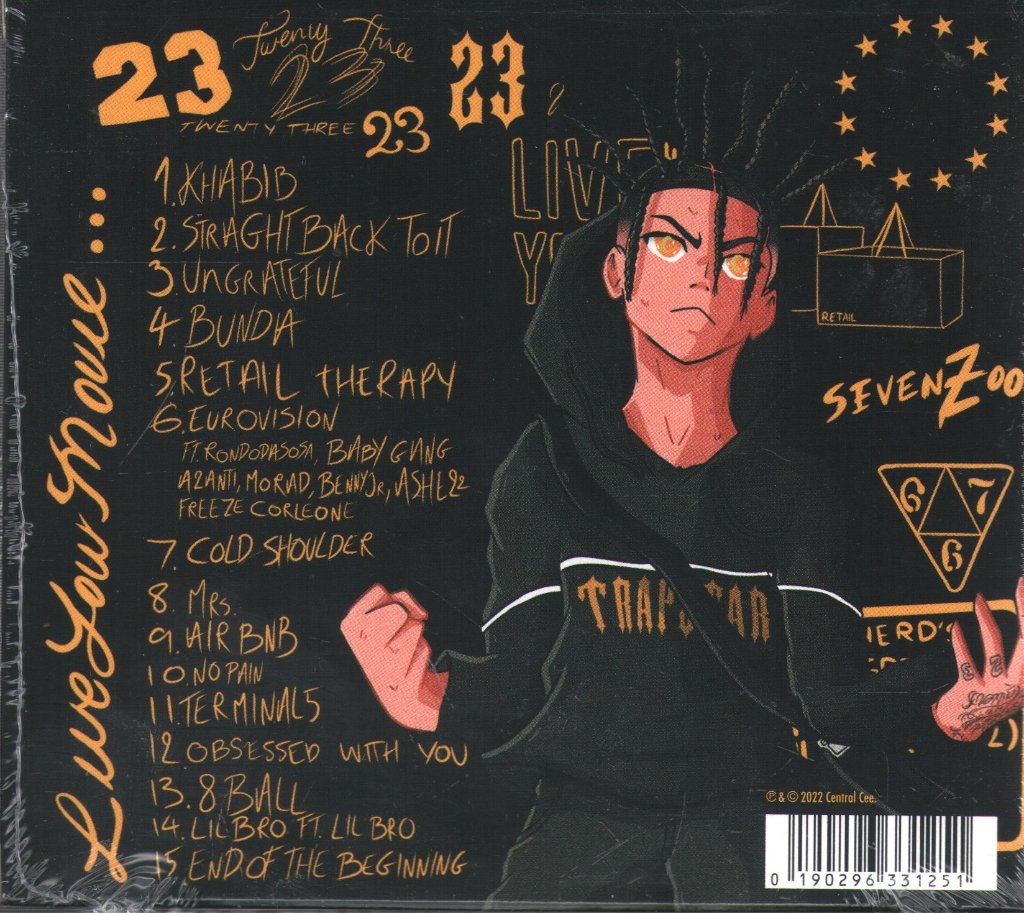 23
Twenty Three
23
TWENTY THREE
23
23
LIVE
Live Your Movie...
1. KHABIB
2. STRAGHT BACK TO IT
3. UNGRATEFUL
4. BUNDA
5. RETAIL THERAPY
6. EUROVISION
FT. RONDODASOSA, BABY GANG
A2ANTI, MORAD, BENNY JR, ASHE22
FREEZE CORLEONE
7. COLD SHOULDER
8. MRS.
9. AIR BNB
10. NO PAIN
11. TERMINAL 5
12 OBSESSED WITH YOU
13. 8 BALL
14. LIL BRO FT. LIL BRO
15. END OF THE BEGINNING
RETAIL
SEVENZOO
6 7
6
TRAPSTAR
HERD'S
℗ & © 2022 Central Cee.
0 190296 331251